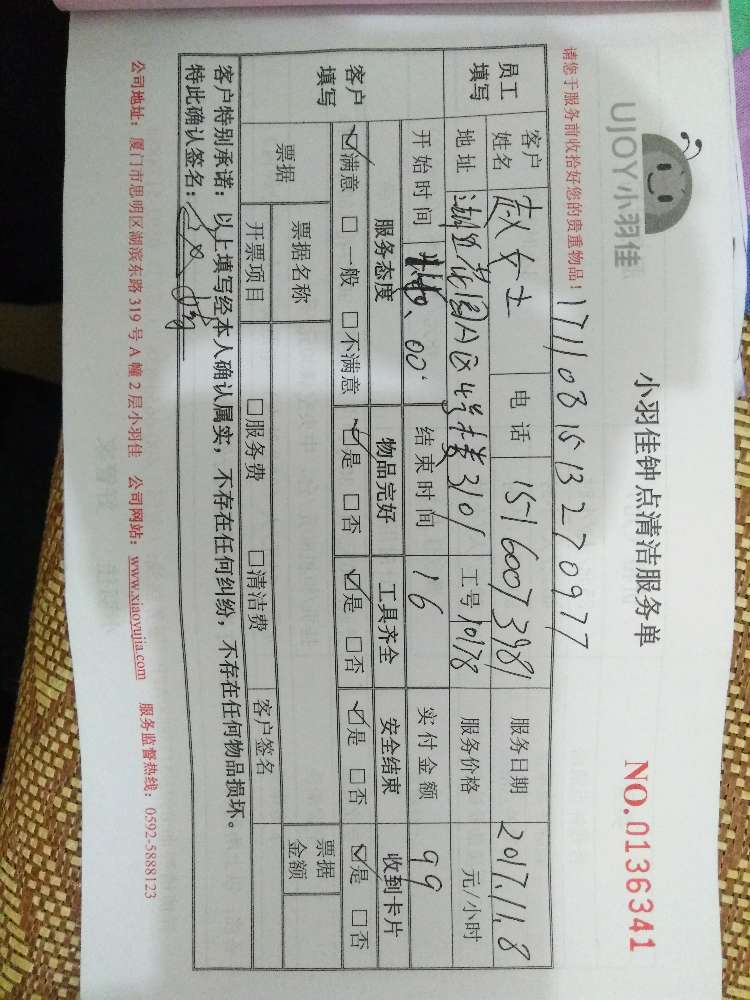 UJOY小羽佳
小羽佳钟点清洁服务单
NO.0136341
请您于服务前收拾好您的贵重物品！
1711081513270977
员工填写 客户姓名 赵女士 电话 15160073981 服务日期 2017.11.8
地址 花园A区4号楼3101 工号 10178 服务价格 元/小时
开始时间 00 结束时间 16 实付金额 99
客户填写 服务态度 物品完好 工具齐全 安全结束 收到卡片
☑满意 □一般 □不满意 ☑是 □否 ☑是 □否 ☑是 □否 ☑是 □否
票据 票据名称 票据金额
开票项目 □服务费 □清洁费 客户签名
客户特别承诺：以上填写经本人确认属实，不存在任何纠纷，不存在任何物品损坏。
特此确认签名：
公司地址：厦门市思明区湖滨东路319号A幢2层小羽佳 公司网站：www.xiaoyujia.com 服务监督热线：0592-5888123